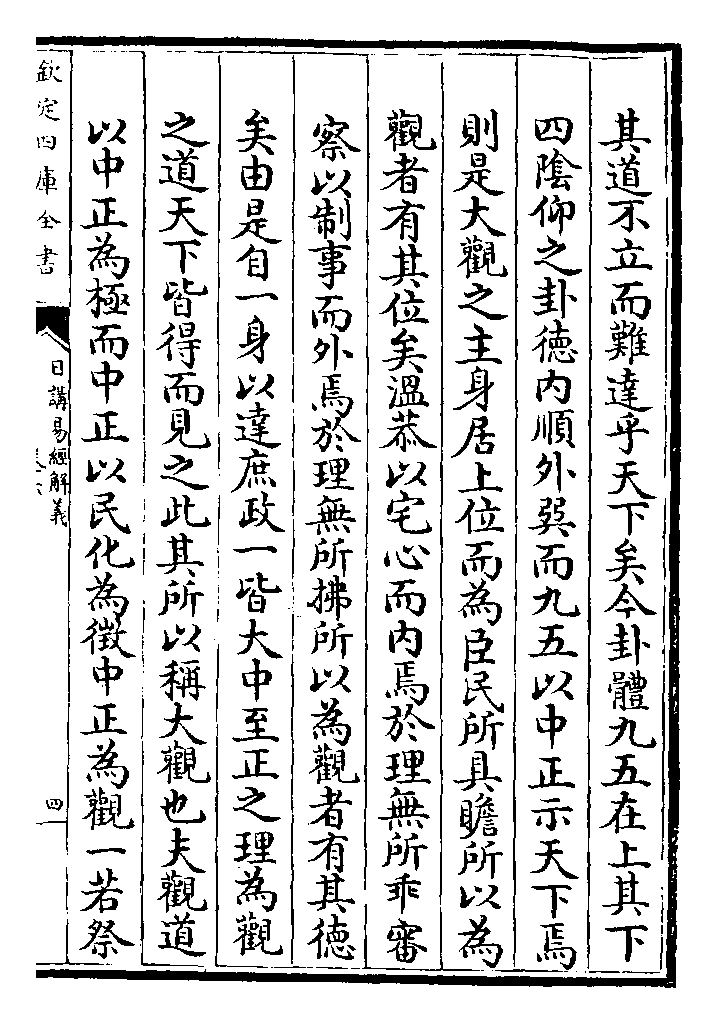 其道不立而難達乎天下矣今卦體九五在上其下
四陰仰之卦德内順外巽而九五以中正示天下焉
則是大觀之主身居上位而為臣民所具瞻所以為
觀者有其位矣溫恭以宅心而内焉於理無所乖審
察以制事而外焉於理無所拂所以為觀者有其德
矣由是自一身以達庶政一皆大中至正之理為觀
之道天下皆得而見之此其所以稱大觀也夫觀道
以中正為極而中正以民化為徴中正為觀一若祭
欽定四庫全書
日講易經解義
卷六
四